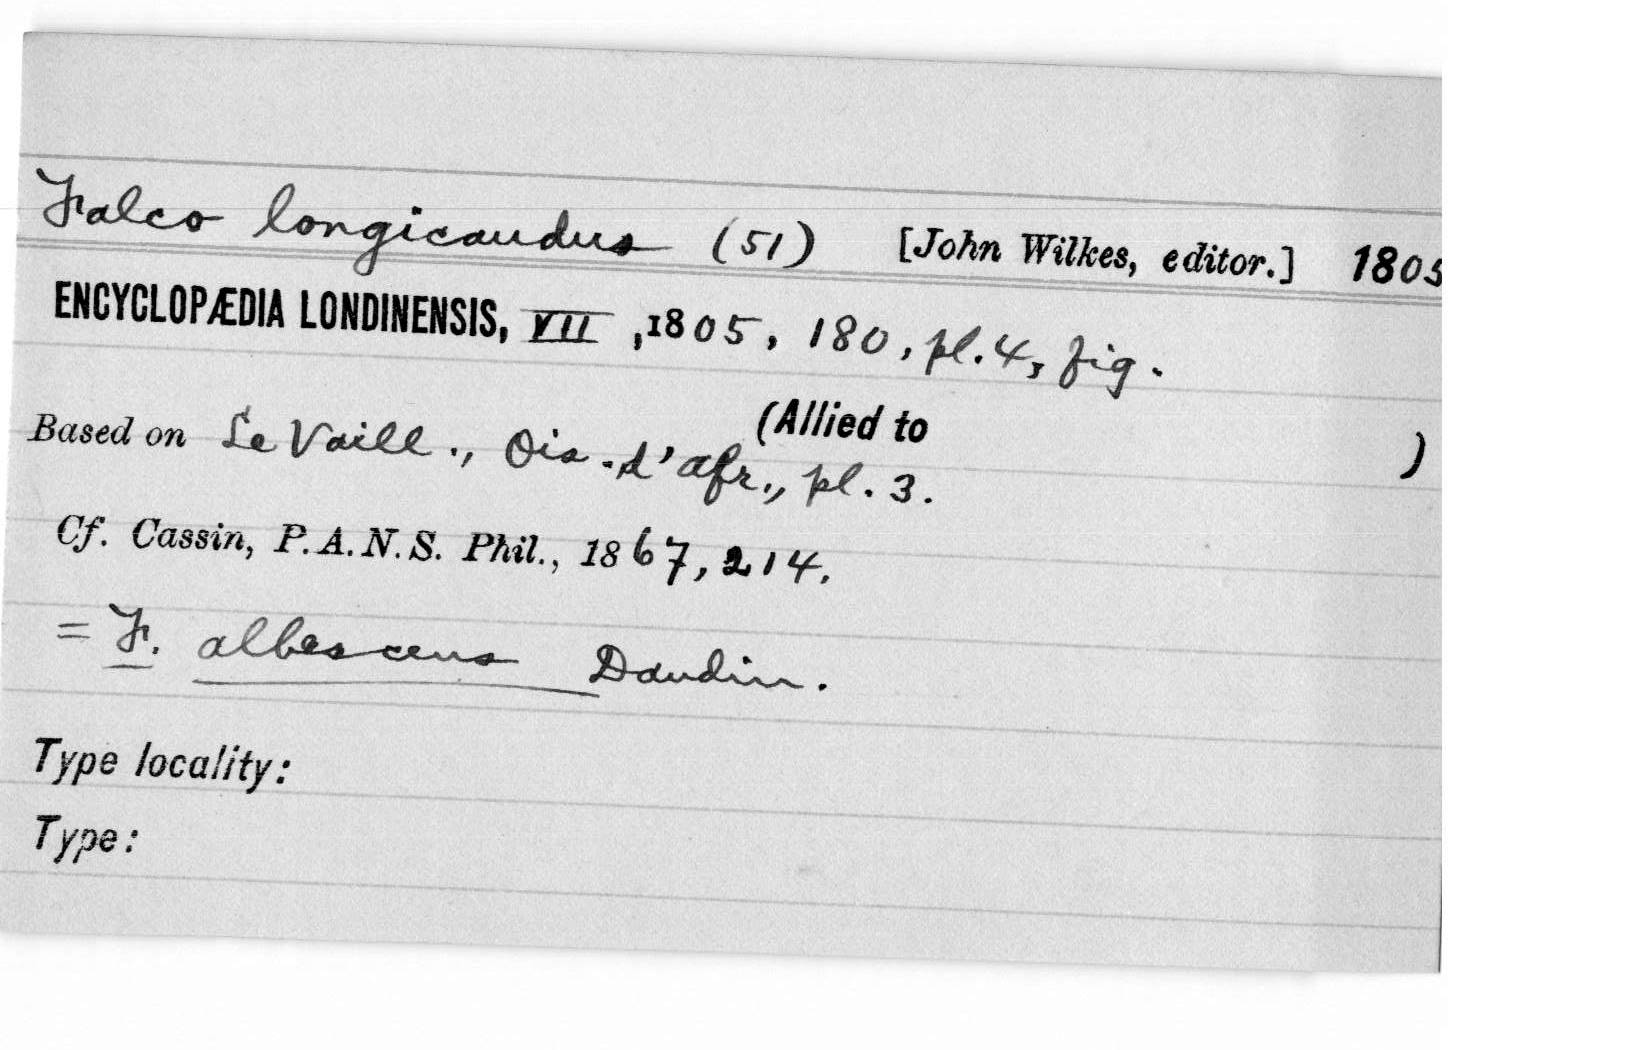 Falco longicaudus (51) [John Wilkes, editor.] 1805
ENCYCLOPÆDIA LONDINENSIS, VII, 1805, 180, pl. 4, fig.
(Allied to )
Based on Le Vaill., Ois. d'Afr., pl. 3.
Cf. Cassin, P. A. N. S. Phil., 1867, 214.
= F. albescens Daudin.
Type locality:
Type: